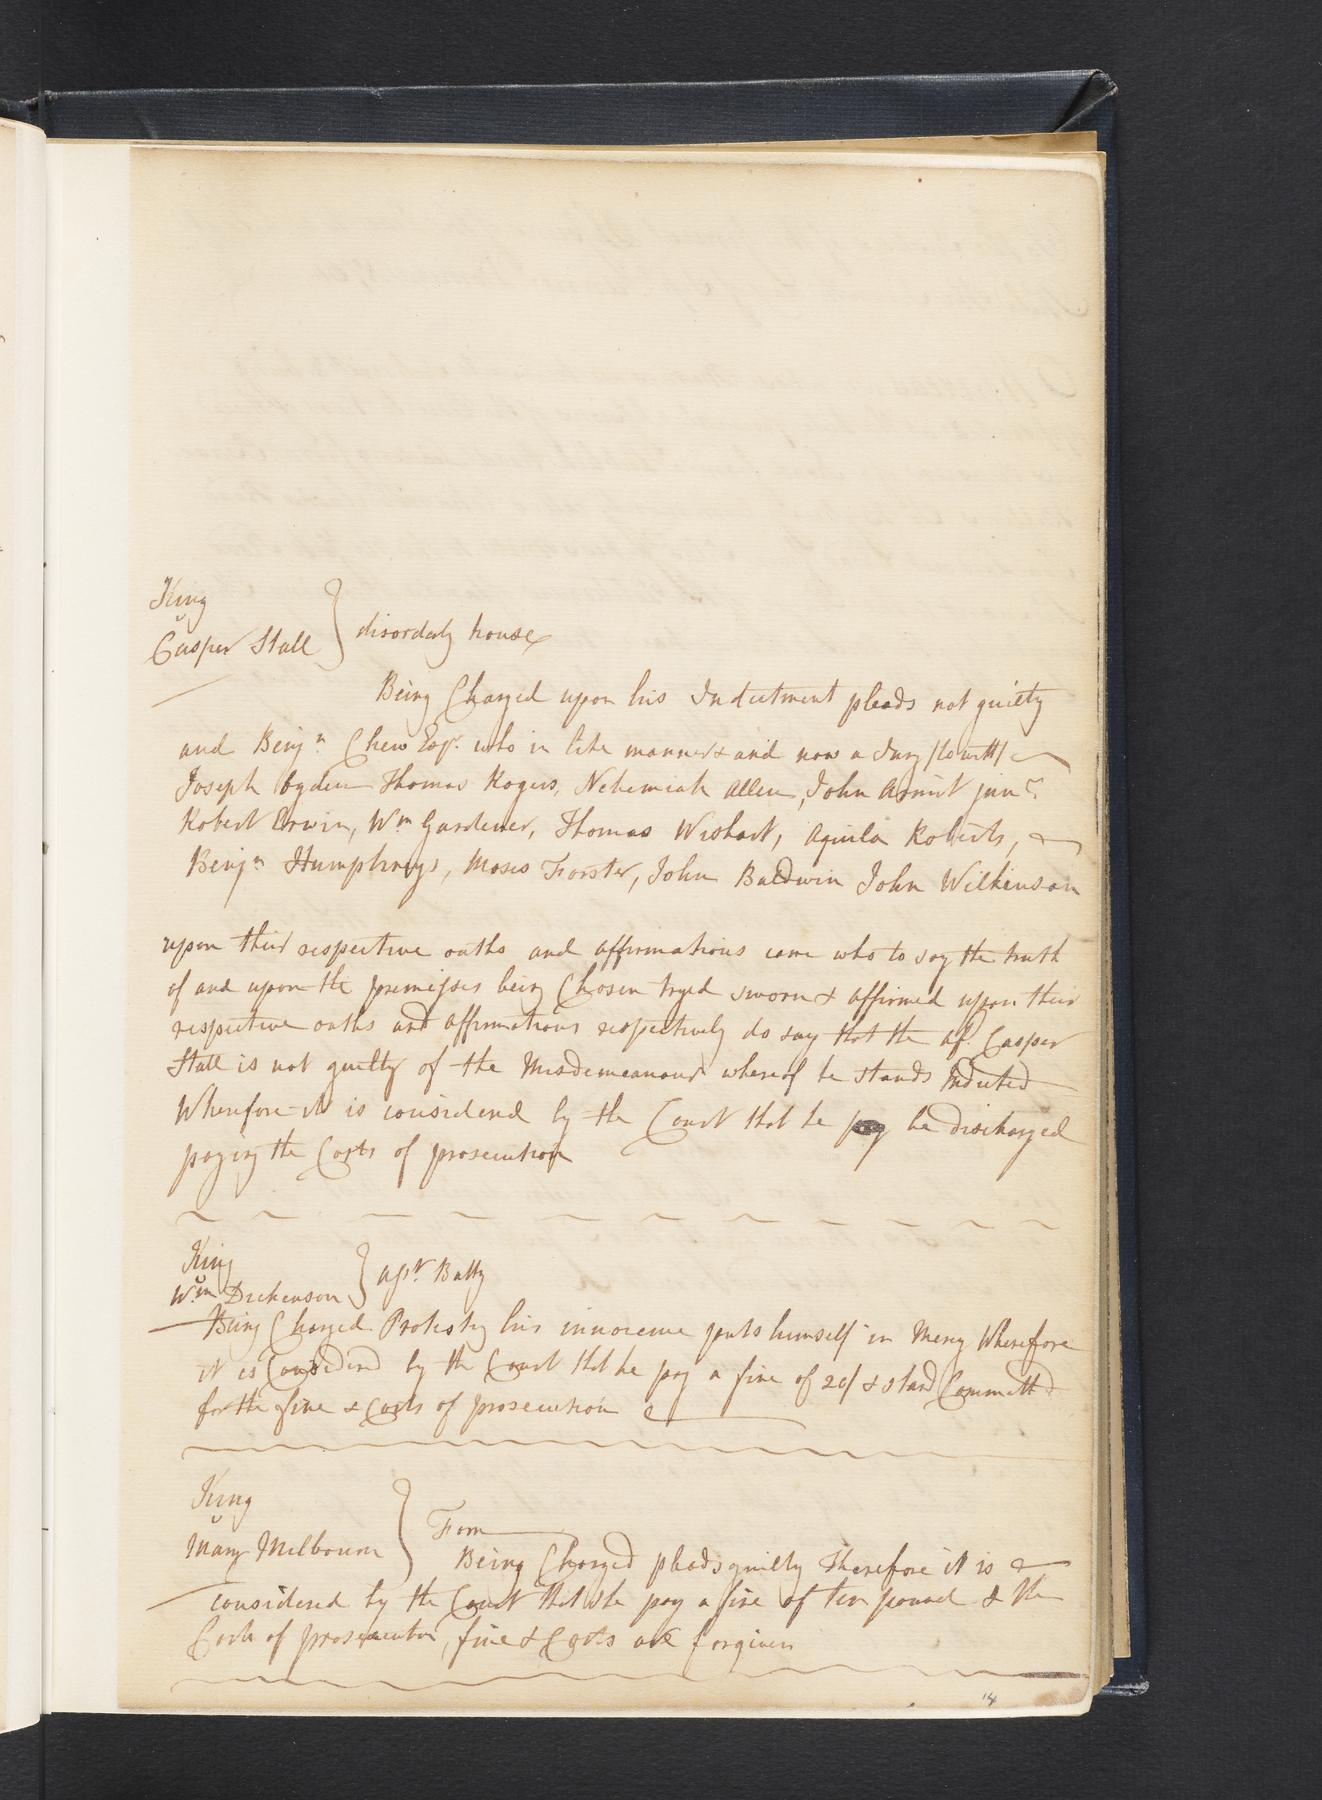 King
v
Casper Stall } disorderly house
Being Charged upon his Indictment pleads not guilty
and Benjn. Chew Esqr. who in like manner & and now a Jury /to witt/
Joseph Ogden Thomas Rogers, Nehemiah Allen, John Armit junr.
Robert Erwin, Wm Gardener, Thomas Wishart, Aquila Roberts,
Benjn Humphreys, Moses Forster, John Baldwin John Wilkinson
upon their respective oaths and affirmations came who to say the truth
of and upon the premisses being Chosen tryed sworn & affirmed upon their
respective oaths and affirmations respectively do say that the af. Casper
Stall is not guilty of the Misdemeanour whereof he stands Indicted
Wherefore it is considered by the Court that he be discharged
paying the Costs of prosecution
King
v
Wm Dickenson } Batty
Being Charged Protestg his innocence puts himself in Mercy Wherefore
it is Considered by the Court that he pay a fine of 20/ & stand Committd
for the fine & Costs of prosecution
King
v
Mary Milbourn } Forn
Being Charged pleads guilty Therefore it is
considered by the Court that she pay a fine of ten pound & the
Costs of prosecution, fine & Costs are forgiven
14